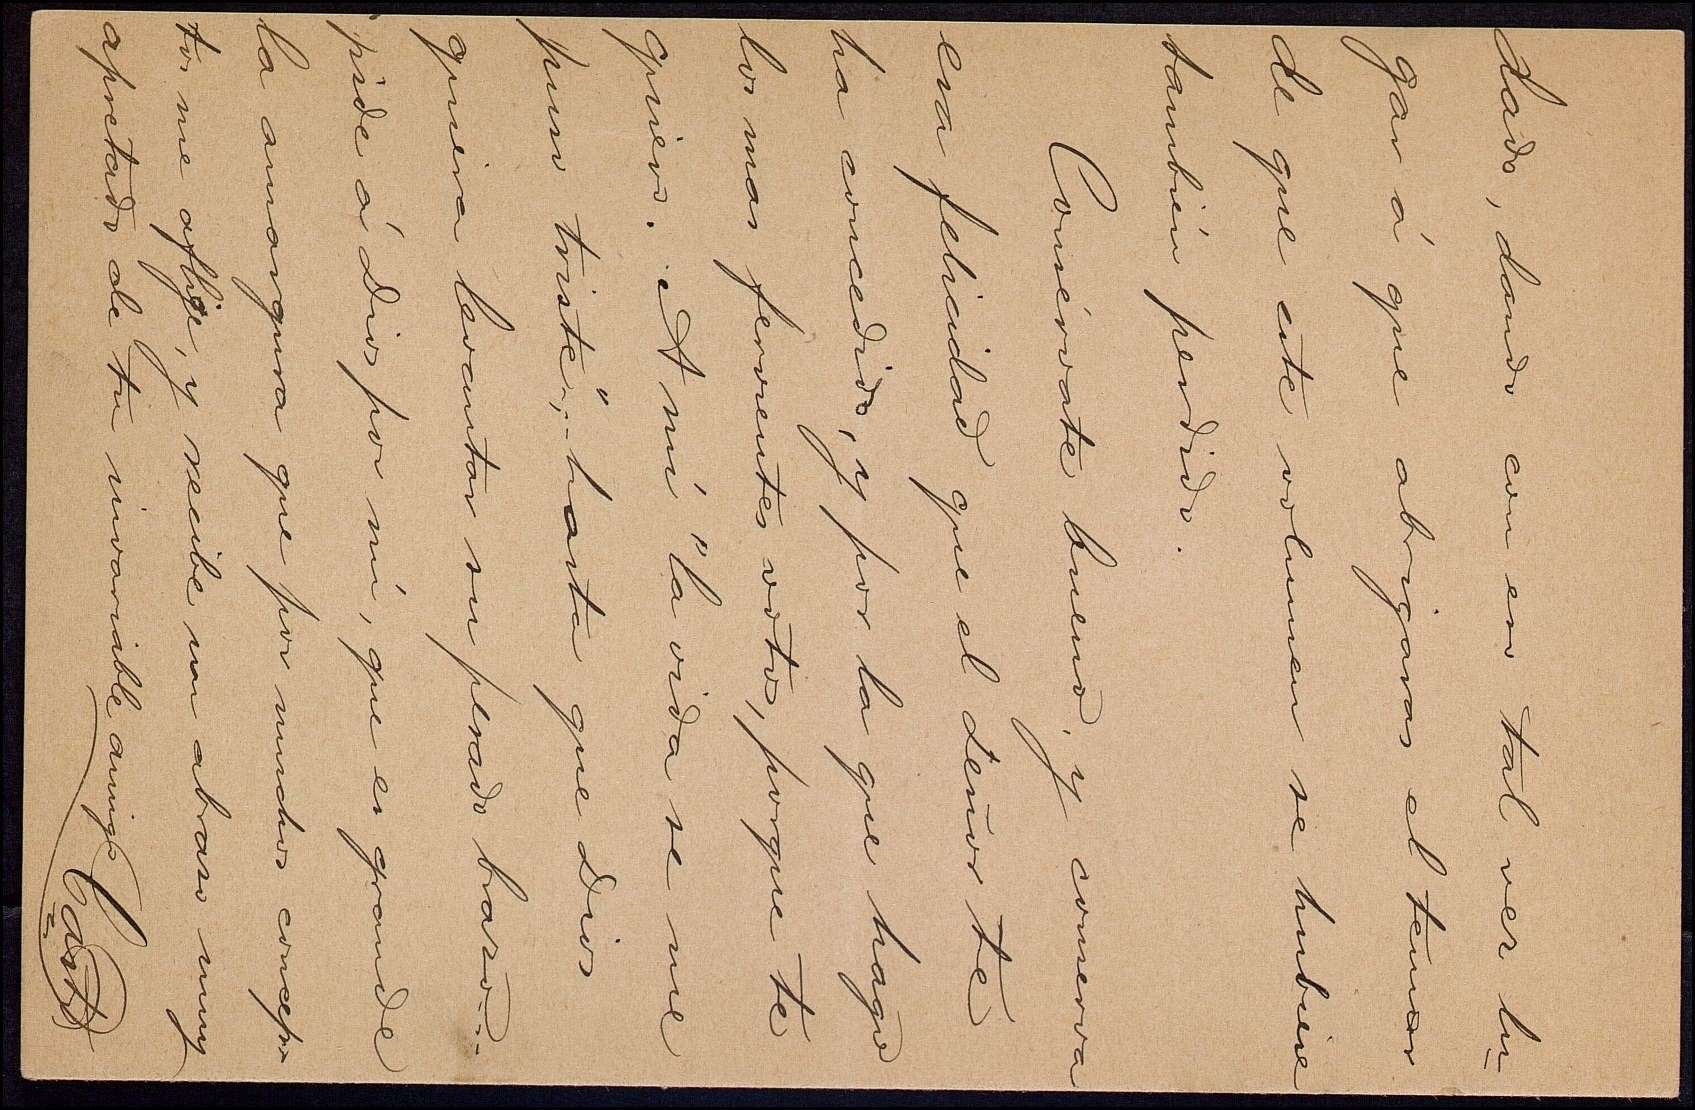 dado, dando con eso tal vez lu-
gar á que abrigaras el temor
de que este volumen se hubiese
tambien perdido.
Consérvate bueno, y conserva
esa felicidad que el Señor te
ha concedido, y por la que hago
los mas fervientes votos, porque te
quiero. A mí "la vida se me
puso triste"; hasta que Dios
quiera levantar su pesado brazo.
pide á Dios por mí, que es grande
la amargura que por muchos concep-
tos me aflige, y recibe un abrazo muy
apretado de tu invariable amigo
Casto